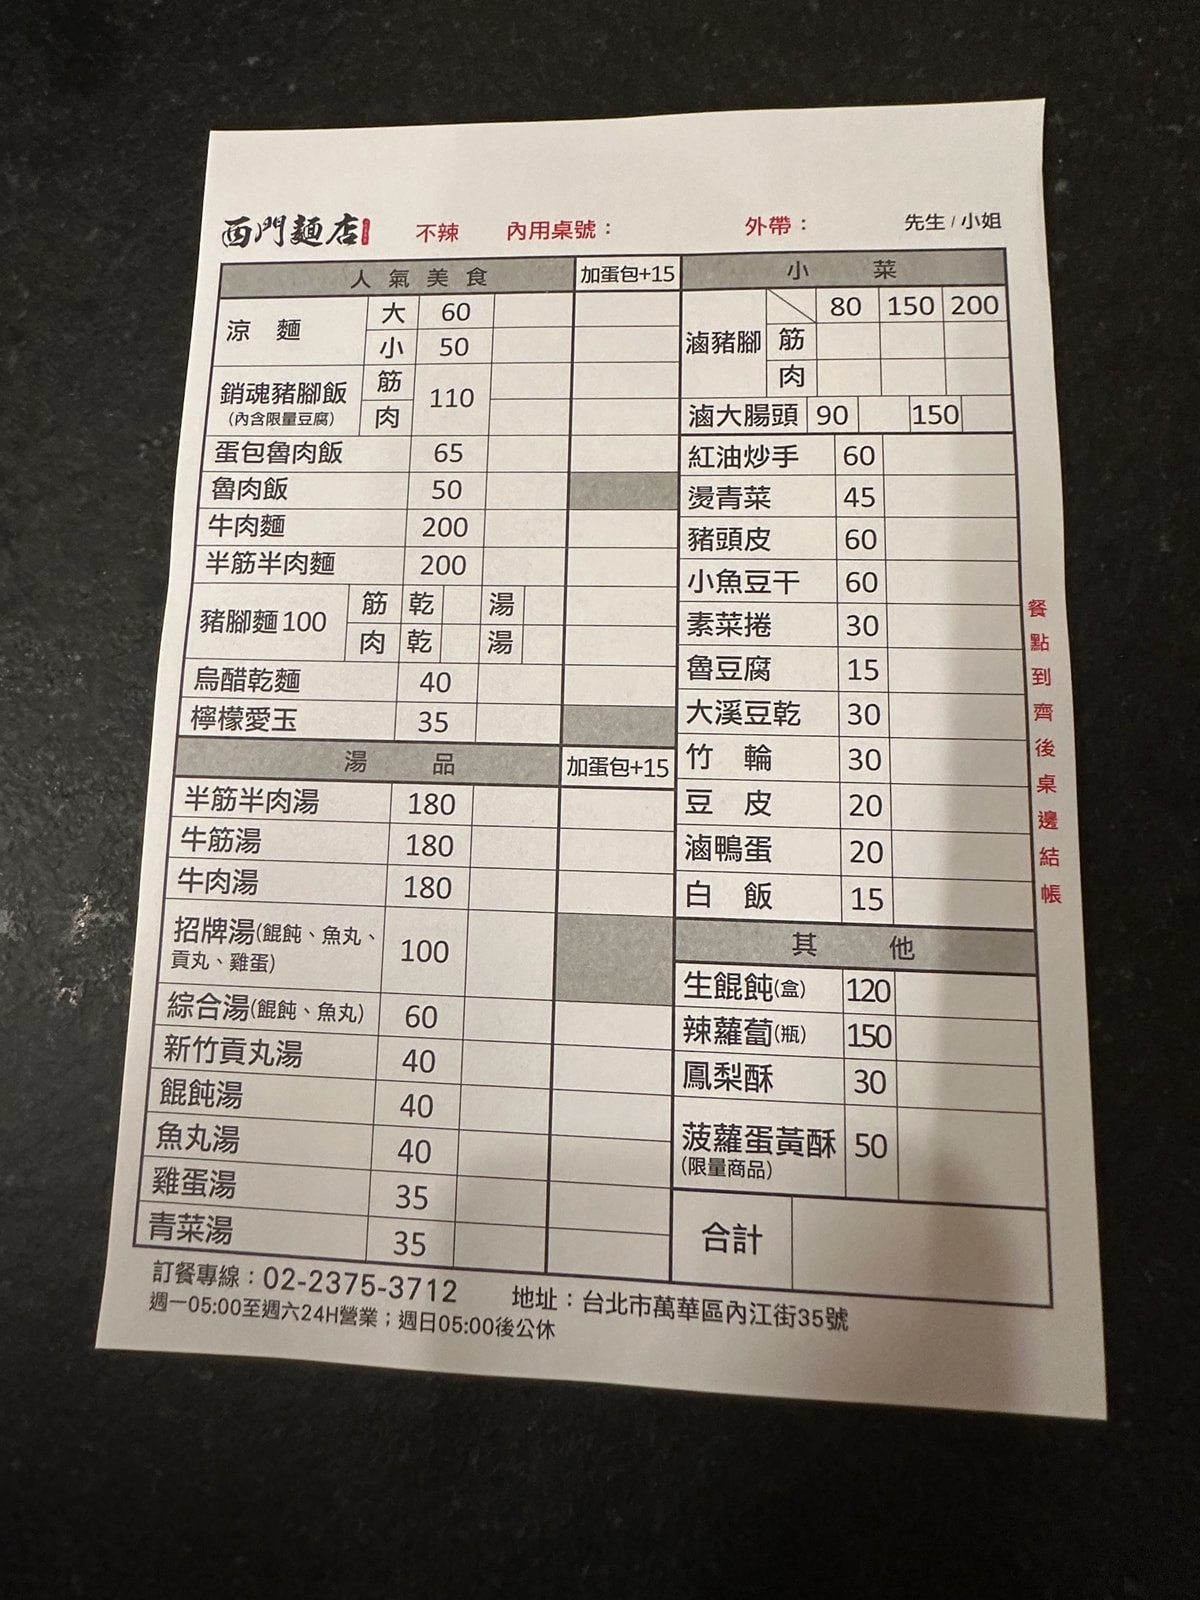 西門麵店 不辣 內用桌號： 外帶： 先生/小姐
人氣美食 加蛋包+15
涼麵 大 60
小 50
銷魂豬腳飯 (內含限量豆腐) 筋 110
肉
蛋包魯肉飯 65
魯肉飯 50
牛肉麵 200
半筋半肉麵 200
豬腳麵100 筋 乾 湯
肉 乾 湯
烏醋乾麵 40
檸檬愛玉 35
湯品 加蛋包+15
半筋半肉湯 180
牛筋湯 180
牛肉湯 180
招牌湯(餛飩、魚丸、
貢丸、雞蛋) 100
綜合湯(餛飩、魚丸) 60
新竹貢丸湯 40
餛飩湯 40
魚丸湯 40
雞蛋湯 35
青菜湯 35
小菜
80 150 200
滷豬腳 筋
肉
滷大腸頭 90 150
紅油炒手 60
燙青菜 45
豬頭皮 60
小魚豆干 60
素菜捲 30
魯豆腐 15
大溪豆乾 30
竹輪 30
豆皮 20
滷鴨蛋 20
白飯 15
其他
生餛飩(盒) 120
辣蘿蔔(瓶) 150
鳳梨酥 30
菠蘿蛋黃酥 50
(限量商品)
合計
餐點到齊後桌邊結帳
訂餐專線：02-2375-3712 地址：台北市萬華區內江街35號
週一05:00至週六24H營業；週日05:00後公休